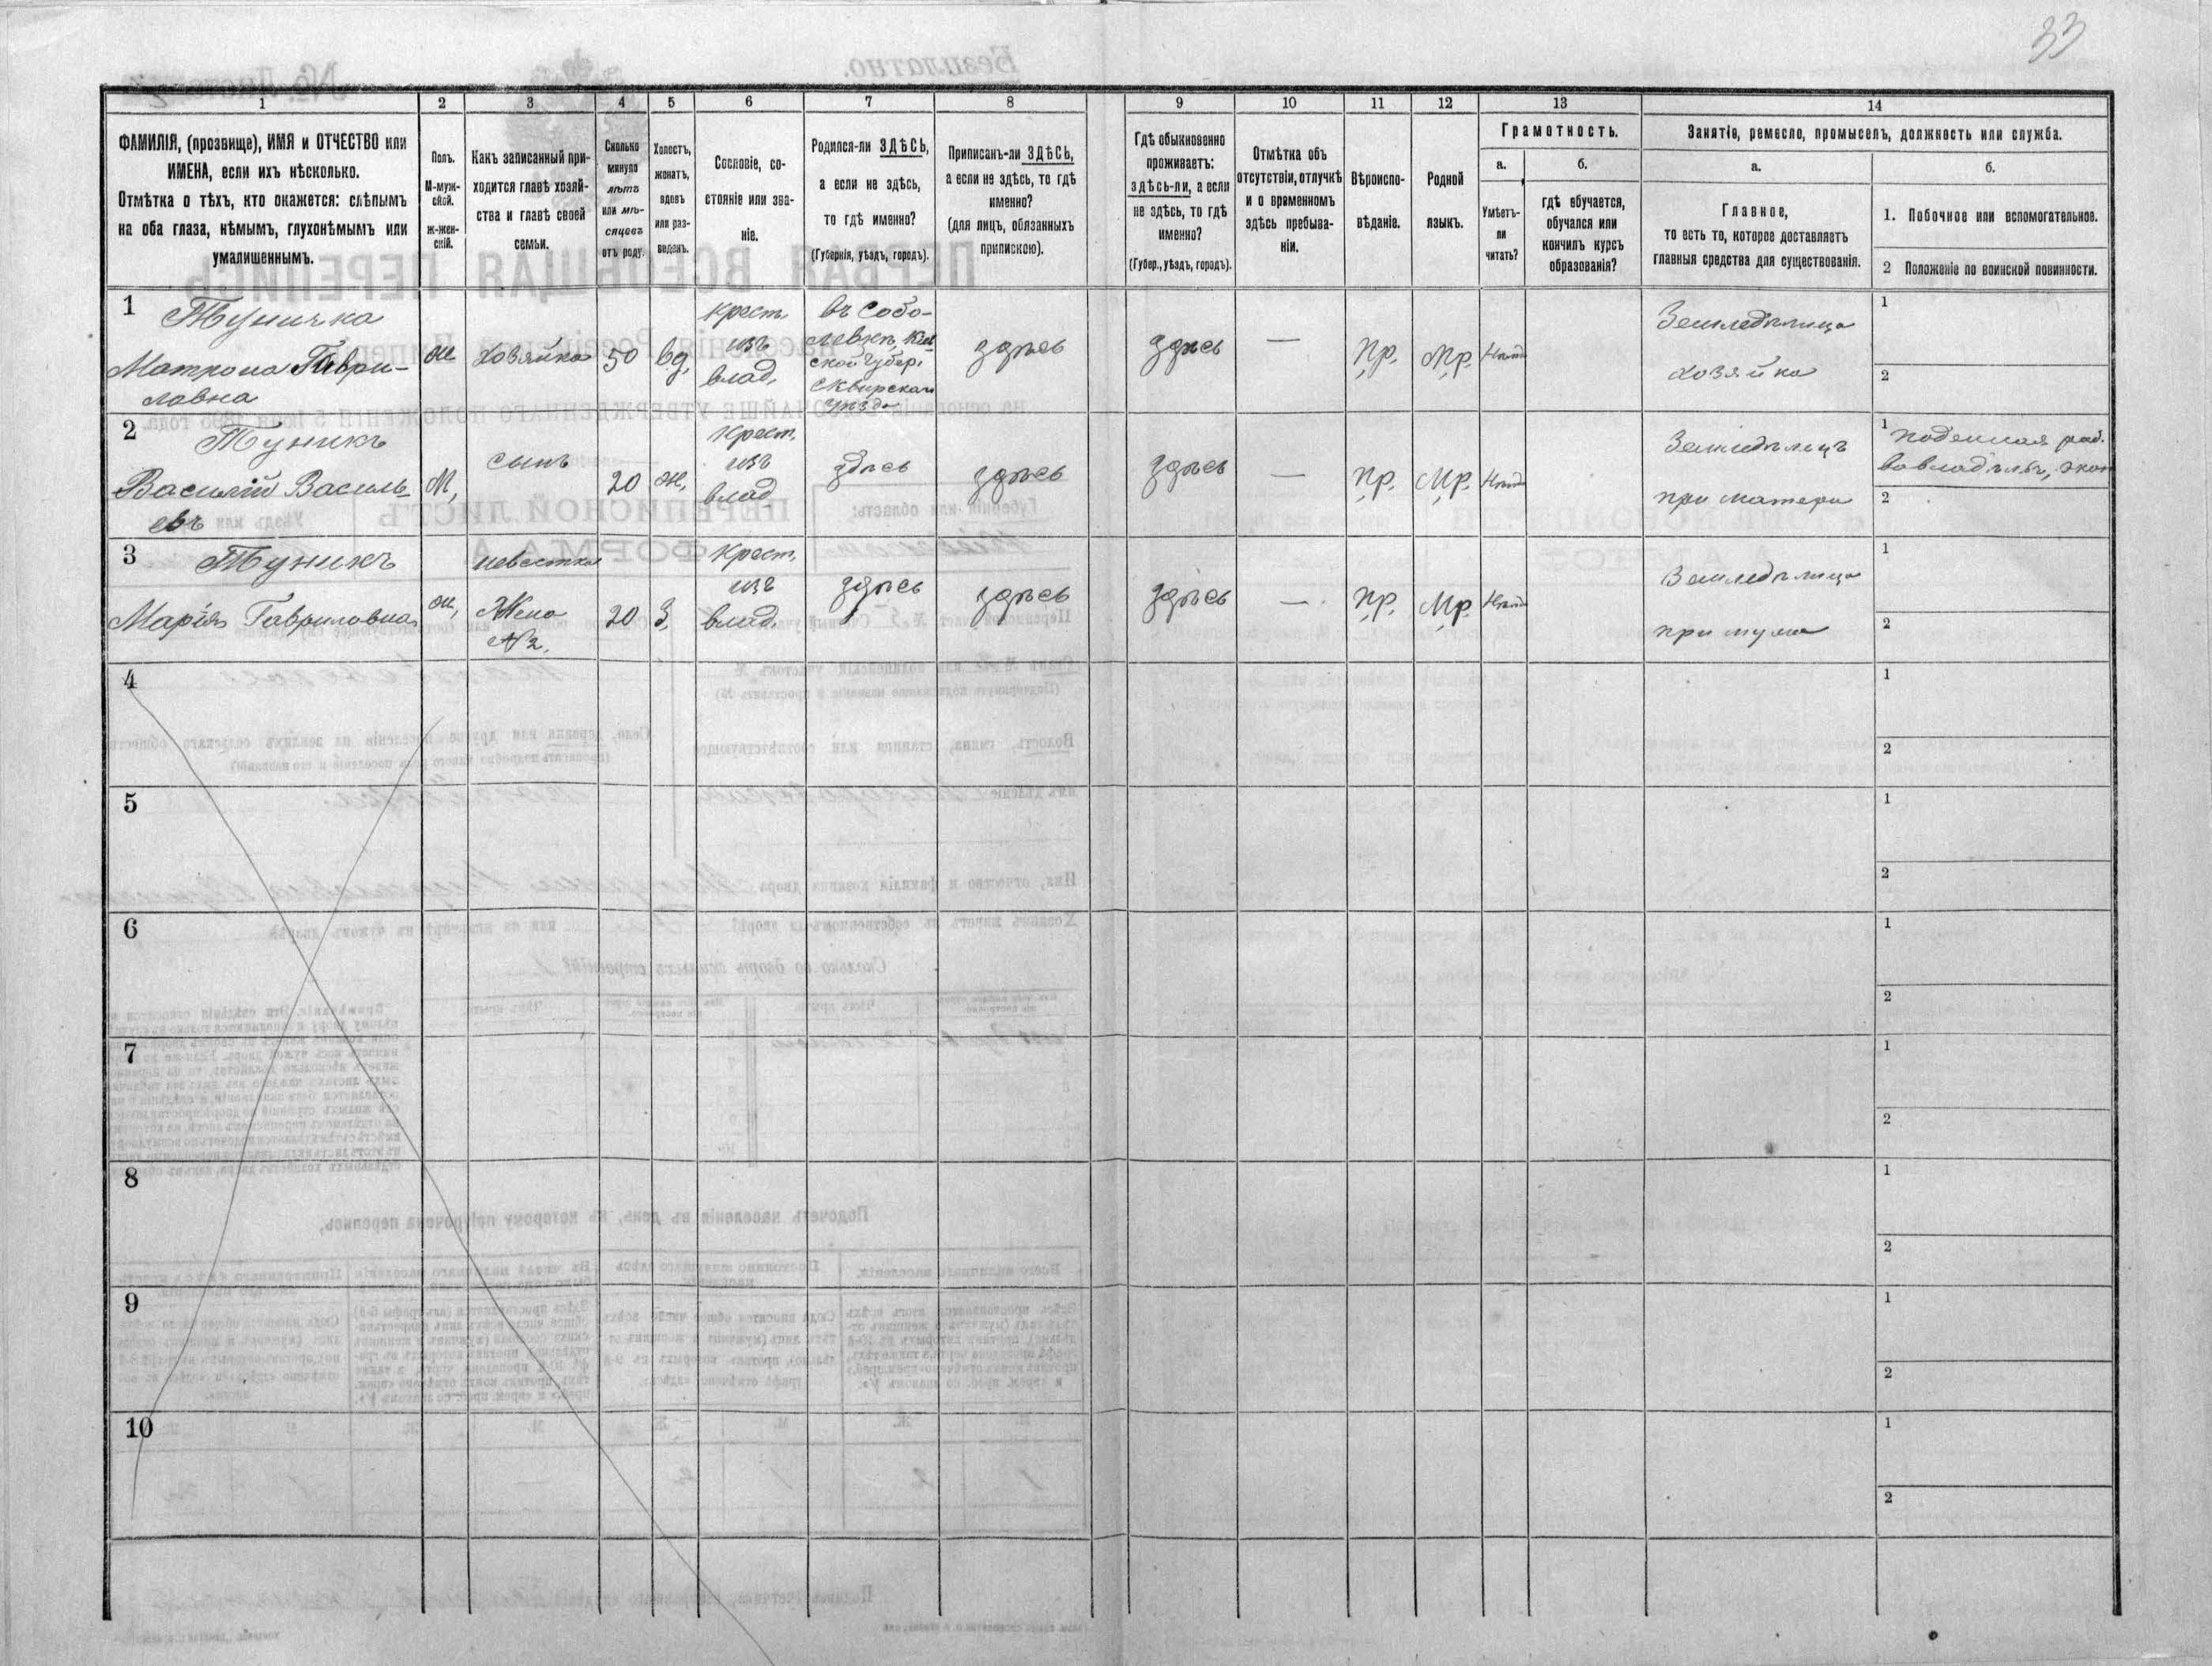 33
1 2 3 4 5 6 7 8 9 10 11 12 13 14
ФАМИЛІЯ, (прозвище), ИМЯ и ОТЧЕСТВО или
ИМЕНА, если ихъ нѣсколько.
Отмѣтка о тѣхъ, кто окажется: слѣпымъ
на оба глаза, нѣмымъ, глухонѣмымъ или
умалишеннымъ.
Полъ.
М-муж-
ской.
ж-жен-
скій.
Какъ записанный при-
ходится главѣ хозяй-
ства и главѣ своей
семьи.
Сколько
минуло
лѣтъ
или мѣ-
сяцевъ
отъ роду.
Холостъ,
женатъ,
вдовъ
или раз-
веденъ.
Сословіе, со-
стояніе или зва-
ніе.
Родился-ли ЗДѢСЬ,
а если не здѣсь,
то гдѣ именно?
(Губернія, уѣздъ, городъ).
Приписанъ-ли ЗДѢСЬ,
а если не здѣсь, то гдѣ
именно?
(для лицъ, обязанныхъ
припискою).
Гдѣ обыкновенно
проживаетъ:
здѣсь-ли, а если
не здѣсь, то гдѣ
именно?
(Губер., уѣздъ, городъ).
Отмѣтка объ
отсутствіи, отлучкѣ
и о временномъ
здѣсь пребыва-
ніи.
Вѣроиспо-
вѣданіе.
Родной
языкъ.
Грамотность.
а.
Умѣетъ-
ли
читать?
б.
гдѣ обучается,
обучался или
кончилъ курсъ
образованія?
Занятіе, ремесло, промыселъ, должность или служба.
а.
Главное,
то есть то, которое доставляетъ
главныя средства для существованія.
б.
1. Побочное или вспомогательное.
2 Положеніе по воинской повинности.
1
Туничка
Матрона Гаври-
ловна
ж
хозяйка
50
вд.
крест.
изъ
влад.
въ Собо-
левкѣ, Кіев
ской губер.
Сквирскаго
уѣзда
здѣсь
здѣсь
—
Пр.
Мр.
Нѣтъ
Земледѣлица
хозяйка
1
2
2
Туникъ
Василій Василь-
евъ
М,
сынъ
20
ж,
Крест,
изъ
влад
здѣсь
здѣсь
здѣсь
—
Пр.
Мр.
Нѣтъ
Земледѣлецъ
при матери
1 поденная раб.
2
3
Туникъ
Марія Гавриловна
ж,
невестка
Жена
№2,
20
З,
Крест,
изъ
влад.
здѣсь
здѣсь
здѣсь
—
Пр.
Мр.
Нѣтъ
Земледѣлица
при мужѣ
1
2
4
1
2
5
1
2
6
1
2
7
1
2
8
1
2
9
1
2
10
1
2